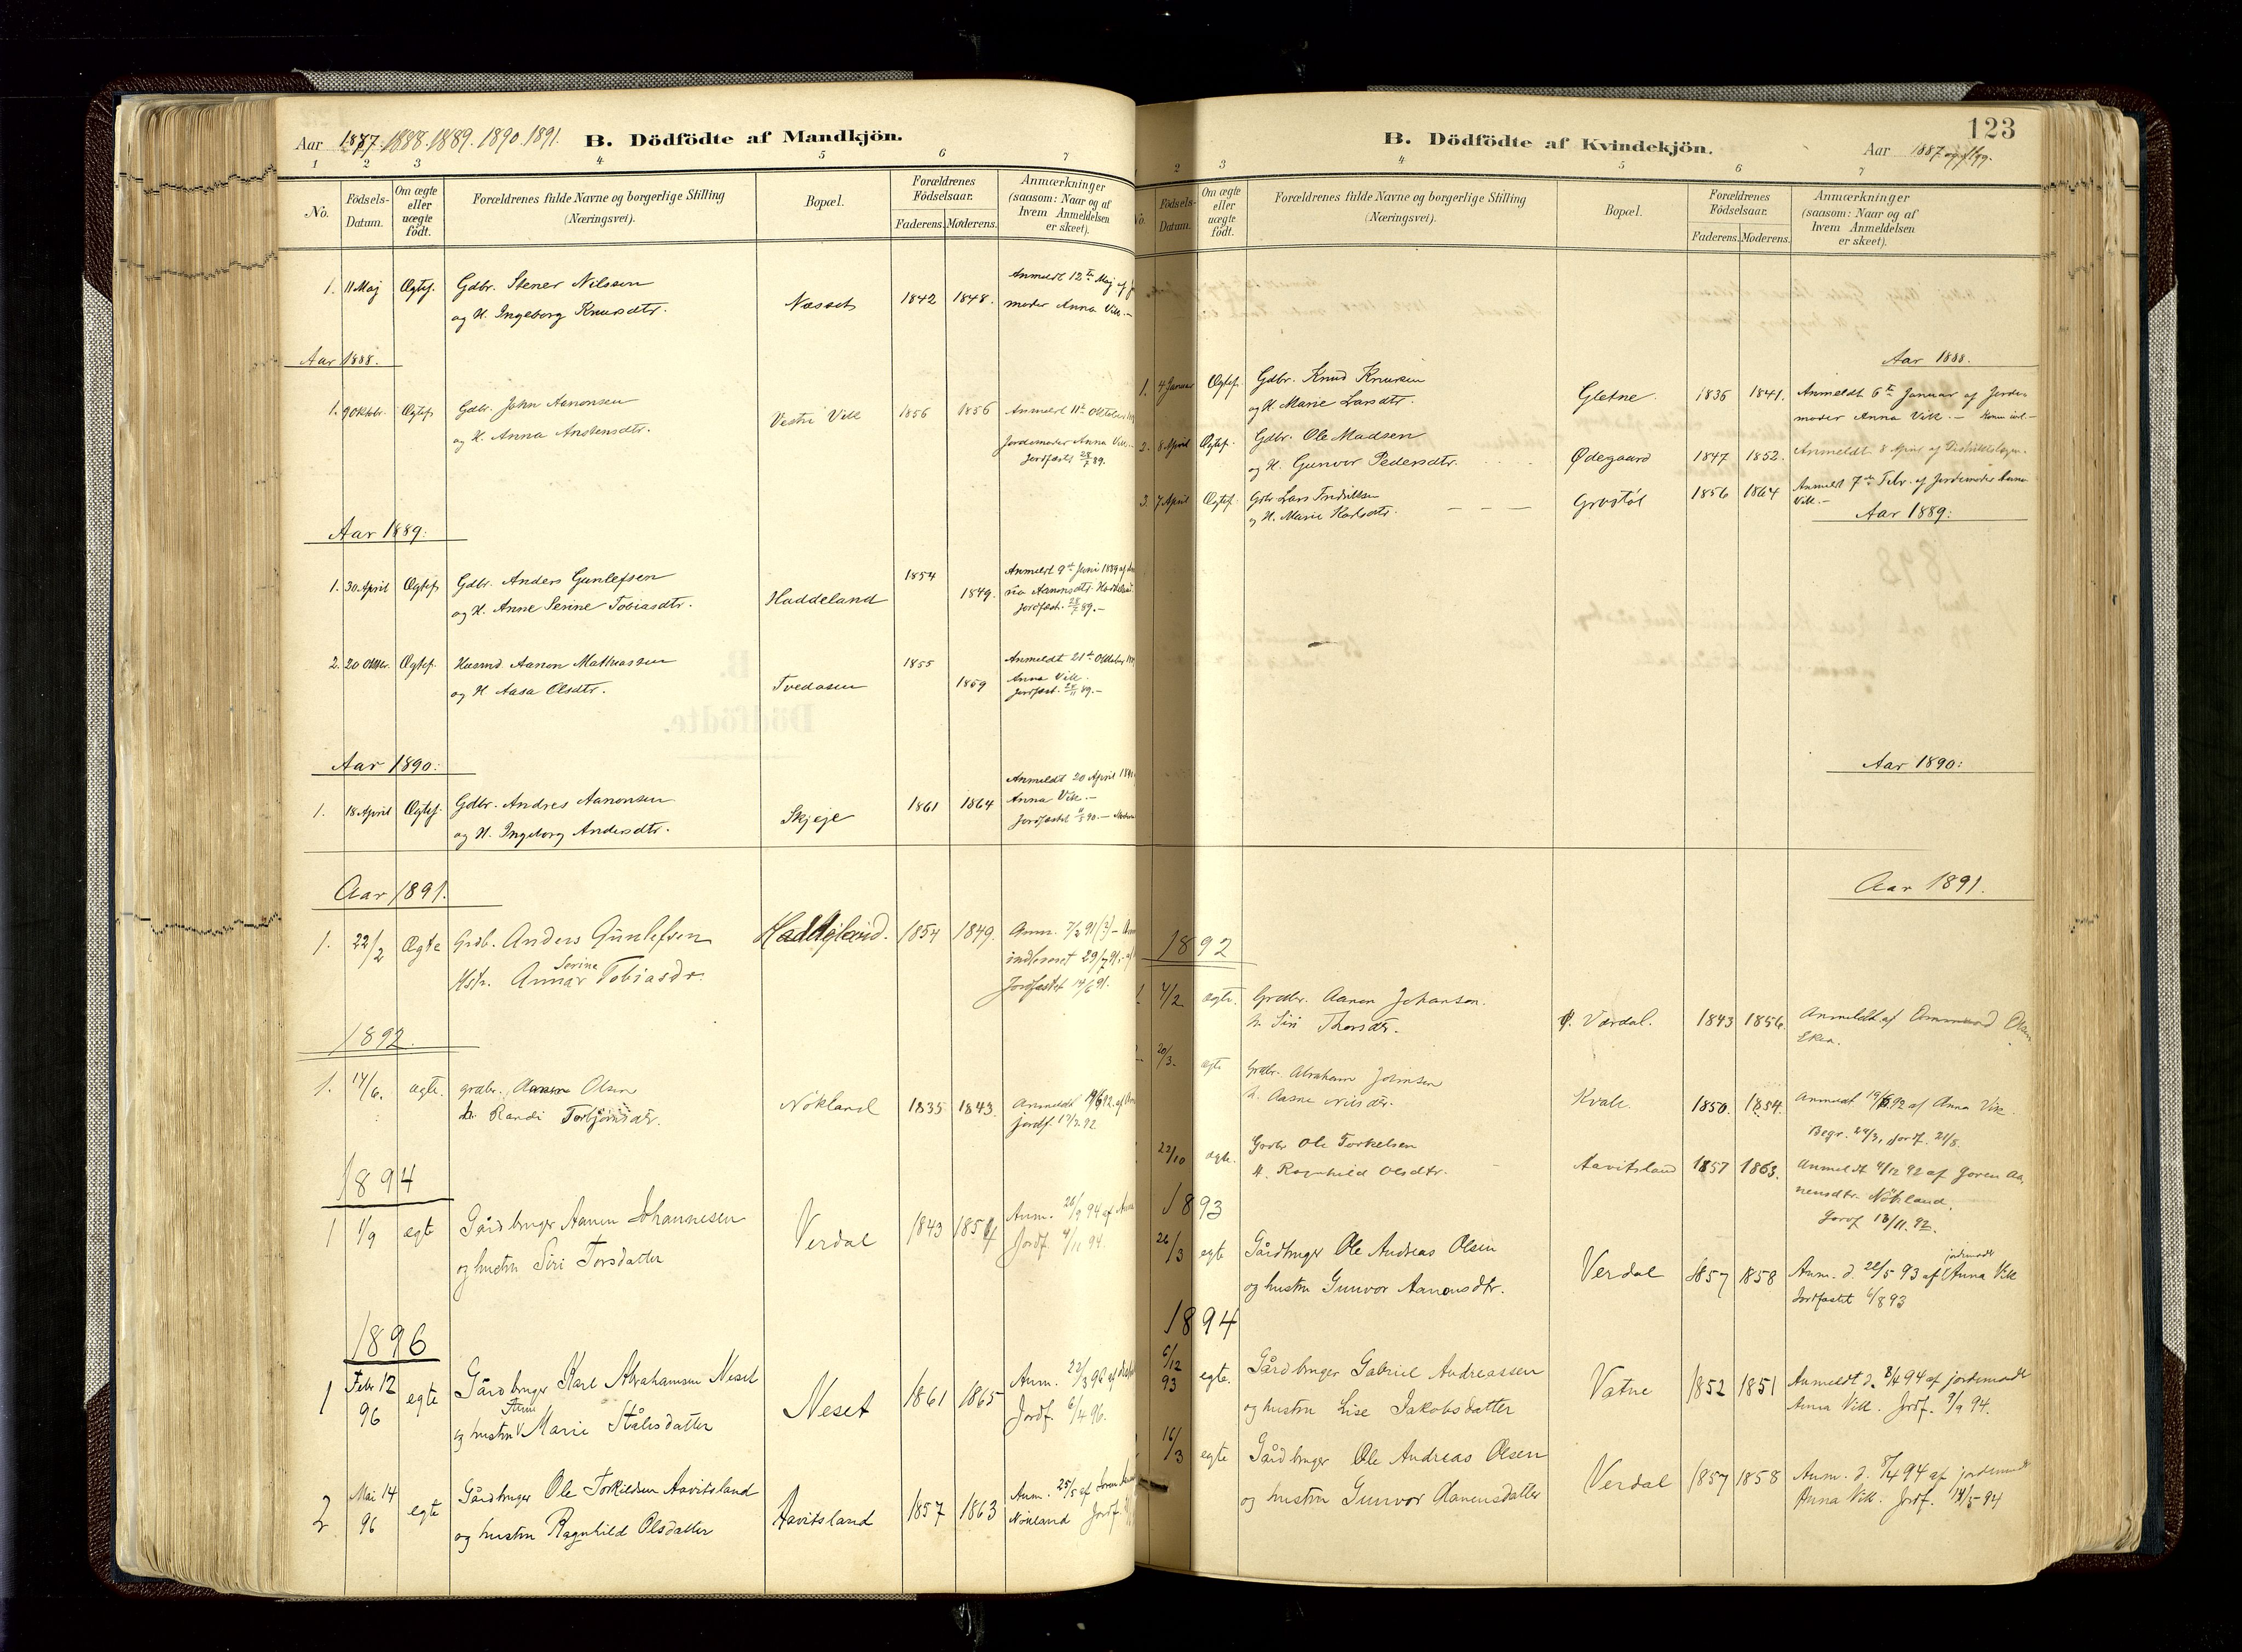 Aar 1887. 1888. 1889. 1890. 1891. B. Dödfödte af Mandkjön.
1 2 3 4 5 6 7
No. Födsels-Datum. Om ægte eller uægte födt. Forældrenes fulde Navne og borgerlige Stilling (Næringsvei). Bopæl. Forældrenes Födselsaar. Faderens. Moderens. Anmærkninger (saasom: Naar og af hvem Anmeldelsen er skeet).
1. 11 Maj Ægtef. Gdbr. Stener Nilssen Anmeldt 12te Maj af
og H. Ingeborg Knudsdtr. Næsset 1842 1848. moder Anna Vik. –
Aar 1888.
1. 9 Oktbr. Ægtef. Gdbr. John Aanonsen Vestre Vik 1856 1856 Anmeldt 11te Oktober
og H. Anna Anstensdtr. Jordemoder Anna Vik.
Jordfæstet 89.
Aar 1889:
1. 30 April Ægtef. Gdbr. Anders Gunlefsen 1854 Anmeldt 9de Juni 1889 af
og H. Anne Serine Tobiasdtr. Haddeland 1849. Aanonsdtr.
Jordfæst. 89. –
2. 20 Oktbr. Ægtef. Husmd. Aanon Mathiassen 1855 Anmeldt 21de Oktober
og H. Aasa Olsdtr. Tvedaasen 1859 Anna Vik.
Jordfæst. 89. –
Aar 1890:
Anmeldt 20 April
1. 18 April Ægtef. Gdbr. Andres Aanonsen 1861 1864 Anna Vik. –
og H. Ingeborg Andersdtr. Skjeje Jordfæstet 90. –
Aar 1891.
1. 22/2 Ægte Grdb. Anders Gunlefsen Haddeland. 1854 1849. Anm. 91
Serine
Hst. Anna Tobiasdr. indleveret
Jordfæstet 14/6 91.
1892.
1. 14/6. ægte. grdbr. Aanen Olsen Nökland 1835 1843. Anmeldt 92 af
h. Randi Torbjörnsdtr. Jordf. 92
1894
1 1/9 egte Gårdbruger Aanen Johannesen Verdal 1843 1854 Anm. 26/9 94 af Anna
og hustru Siri Torsdatter Jordf. 4/11 94.
1896
1 Febr 12 96 egte Gårdbruger Karl Abrahamsen Neset Neset 1861 1865 Anm. 22/3 96 af
og hustru Marie Stålesdatter Jordf. 6/4 96.
2 Mai 14 96 egte Gårdbruger Ole Torkildsen Aavitsland Aavitsland 1857 1863 Anm. 25/5 af
og hustru Ragnhild Olsdatter Nökland Jordf.
123
B. Dödfödte af Kvindekjön. Aar 1887 og flgg.
2 3 4 5 6 7
No. Födsels-Datum. Om ægte eller uægte födt. Forældrenes fulde Navne og borgerlige Stilling (Næringsvei). Bopæl. Forældrenes Födselsaar. Faderens. Moderens. Anmærkninger (saasom: Naar og af hvem Anmeldelsen er skeet).
Aar 1888.
1. 4 Januar Ægtef. Gdbr. Knud Knudsen Gletne. 1835 1841. Anmeldt 6te Januar af Jorde-
og H. Marie Larsdtr. moder Anna Vik. –
2. 8 April Ægtef. Gdbr. Ole Madsen Ødegaard 1847 1852. Anmeldt 8 April af Distriktslægen.
og H. Gunvor Pedersdtr.
3. 7 April Ægtef. Gdbr. Lars Fredriksen Grostøl 1856 1864 Anmeldt 7de Febr. af Jordemoder Anna
og H. Marie Karlsdtr. – – – Vik. –
Aar 1889:
Aar 1890:
Aar 1891.
1892
1. 4/2 ægte. Grdbr. Aanen Johansen. Verdal. 1843 1856. Anmeldt af Olsen
h. Siri Thorsdtr. Eken.
20/3. ægte Grdbr. Abraham Johnsen Kvale. 1850. 1854. Anmeldt 92 af Anna Vik.
h. Aasne Nilsdtr. Begr. 24/3, Jordf. 21/8.
22/10 ægte. Grdbr Ole Torkelsen Aavitsland 1857 1863. Anmeldt 4/12 92 af Goren Aa-
H. Ragnhild Olsdtr. nensdtr. Nökland.
Jordf 13/11. 92.
1893
26/3 egte Gårdbruger Ole Andreas Olsen Verdal 1857 1858 Anm. d. 22/5 93 af jordemoder Anna Vik
og hustru Gunvor Aanonsdtr. Jordfæstet 6/8 93
1894
6/12 93 egte. Gårdbruger Gabriel Andreassen Vatne 1852 1851 Anmeldt d. 8/4 94 af jordemoder
og hustru Lise Jakobsdatter Anna Vik. Jordf. 9/9 94.
16/3 egte Gårdbruger Ole Andreas Olsen Verdal 1857 1858 Anm. d. 8/4 94 af jordemoder
og hustru Gunvor Aanensdatter Anna Vik. Jordf. 14/5 94